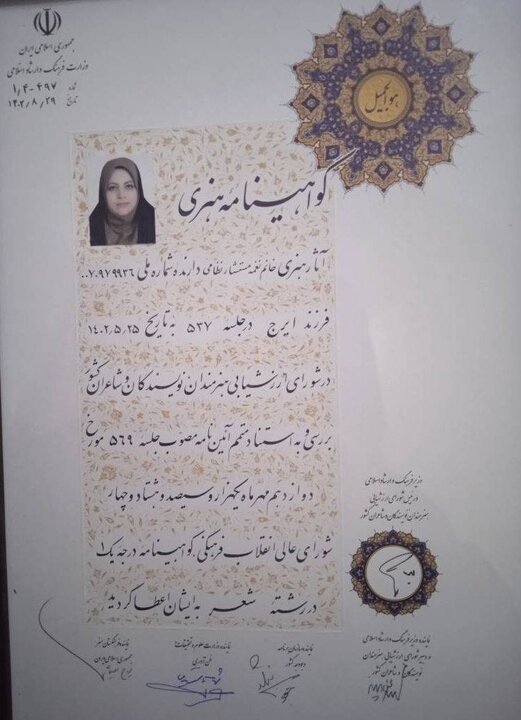 جمهوری اسلامی ایران
وزارت فرهنگ و ارشاد اسلامی
شماره ۱,۴-۴۹۷
تاریخ ۱۴۰۲/۸/۲۹
هو الجمیل
گواهینامه هنری
آثار هنری خانم نغمه مستشار نظامی دارنده شماره ملی ۰۰۷۰۹۷۹۹۳۶
فرزند ایرج در جلسه ۵۳۷ به تاریخ ۱۴۰۲,۵,۲۵
در شورای ارزشیابی هنرمندان نویسندگان و شاعران کشور
بررسی و به استناد متمم آئین نامه مصوب جلسه ۵۶۹ مورخ
دوازدهم مهر ماه یکهزار و سیصد و هشتاد و چهار
شورای عالی انقلاب فرهنگی گواهینامه درجه یک ۱
در رشته شعر به ایشان اعطا گردید
وزیر فرهنگ و ارشاد اسلامی
و رییس شورای ارزشیابی
هنرمندان نویسندگان و شاعران کشور
نماینده وزیر فرهنگ و ارشاد اسلامی
و دبیر شورای ارزشیابی هنرمندان
نویسندگان و شاعران کشور
نماینده سازمان برنامه
و بودجه کشور
نماینده وزارت علوم و تحقیقات
و فن آوری
نماینده فرهنگستان هنر
جمهوری اسلامی ایران